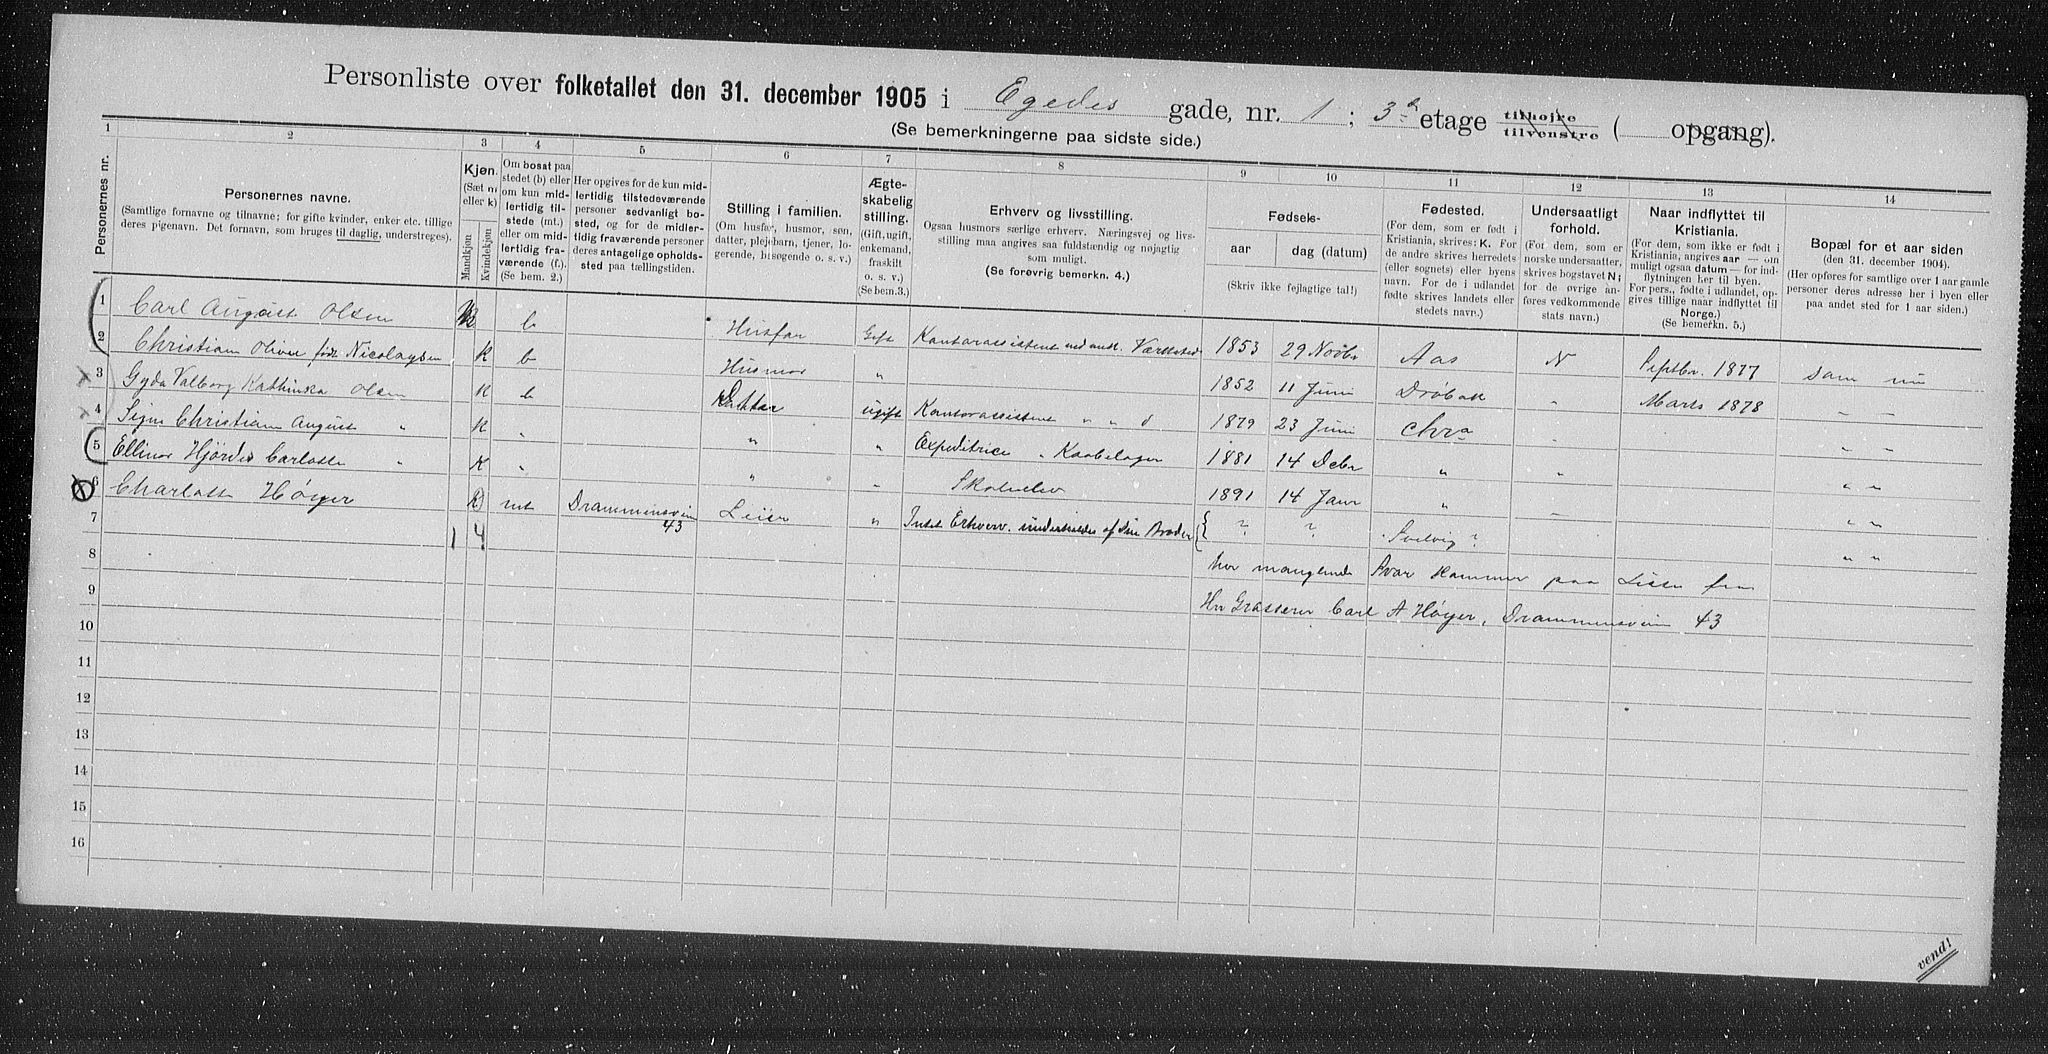 Personliste over folketallet den 31. december 1905 i Egedes gade, nr. 1 ; 3de etage tilhøjre tilvenstre ( opgang).
(Se bemerkningerne paa sidste side.)
1 2 3 4 5 6 7 8 9 10 11 12 13 14
Personernes nr.
Personernes navne.
(Samtlige fornavne og tilnavne; for gifte kvinder, enker etc. tillige
deres pigenavn. Det fornavn, som bruges til daglig, understreges).
Kjøn.
(Sæt m
eller k)
Mandkjøn
Kvindekjøn
Om bosat paa
stedet (b) eller
om kun mid-
lertidig til-
stede (mt.)
eller om mid-
lertidig fra-
værende (f.).
(Se bem. 2.)
Her opgives for de kun mid-
lertidig tilstedeværende
personer sedvanligt bo-
sted, og for de midler-
tidig fraværende personer
deres antagelige opholds-
sted paa tællingstiden.
Stilling i familien.
(Om husfar, husmor, søn,
datter, plejebarn, tjener, lo-
gerende, besøgende o. s. v.)
Ægte-
skabelig
stilling.
(Gift, ugift,
enkemand,
fraskilt
o. s. v.)
(Se bem.3.)
Erhverv og livsstilling.
Ogsaa husmors særlige erhverv. Næringsvej og livs-
stilling maa angives saa fuldstændig og nøjagtig
som muligt.
(Se forøvrig bemerkn. 4.)
Fødsels-
aar
dag (datum)
(Skriv ikke fejlagtige tal!)
Fødested.
(For dem, som er født i
Kristiania, skrives: K. For
de andre skrives herredets
(eller sognets) eller byens
navn. For de i udlandet
fødte skrives landets eller
stedets navn.)
Undersaatligt
forhold.
(For dem, som er
norske undersaatter,
skrives bogstavet N;
for de øvrige an-
føres vedkommende
stats navn.)
Naar indflyttet til
Kristiania.
(For dem, som ikke er født i
Kristiania, angives aar — om
muligt ogsaa datum — for ind-
flytningen her til byen.
For pers., fødte i udlandet, op-
gives tillige naar indflyttet til
Norge.)
(Se bemerkn. 5.)
Bopæl for et aar siden
(den 31. december 1904).
(Her opføres for samtlige over 1 aar gamle
personer deres adresse her i byen eller
paa andet sted for 1 aar siden.)
1 Carl August Olsen b Husfar Gift Kontorassistent ved Værksted 1853 29 Novbr Aas N Septbr. 1877 Sam nu
2 Christiane Olivie født Nicolaysen K b Husmor " 1852 11 Juni Drøbak " Marts 1878 " "
3 Gyda Valborg Kathinka Olsen K b Datter ugift Kontorassistent " " d 1879 23 Juni Chra " " "
4 Signe Christiane August " K " " " Expeditrice " Kaabelager 1881 14 Debr " " " "
5 Ellinor Hjørdis Carlotte " K " " " Skoleelev 1891 14 Janr " " " "
6 Charlotte Høyer K mt Drammensvein 43 Leier " Intet Erhverv. underholdes af sin Broder { ? ? Svelvig ? " "
7 1 4
8 her manglende Svar kommer paa Liste fra
9 Hr Grosserer Carl A Høyer, Drammensvein 43
10
11
12
13
14
15
16
vend!